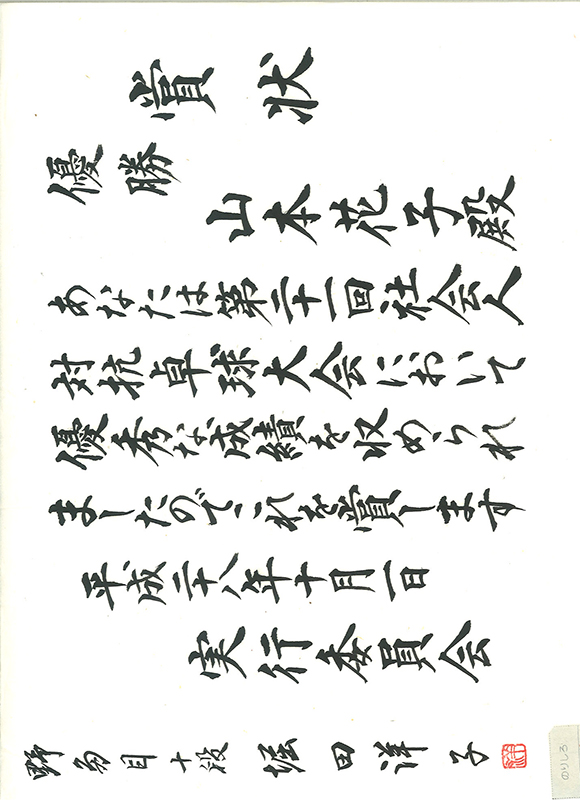 賞状
優勝
山本花子殿
あなたは第二十一回社会人
対抗卓球大会において
優秀な成績を収められ
ましたのでこれを賞します
平成二十八年十月一日
実行委員会
野多目 十段 堀田洋子
のりしろ